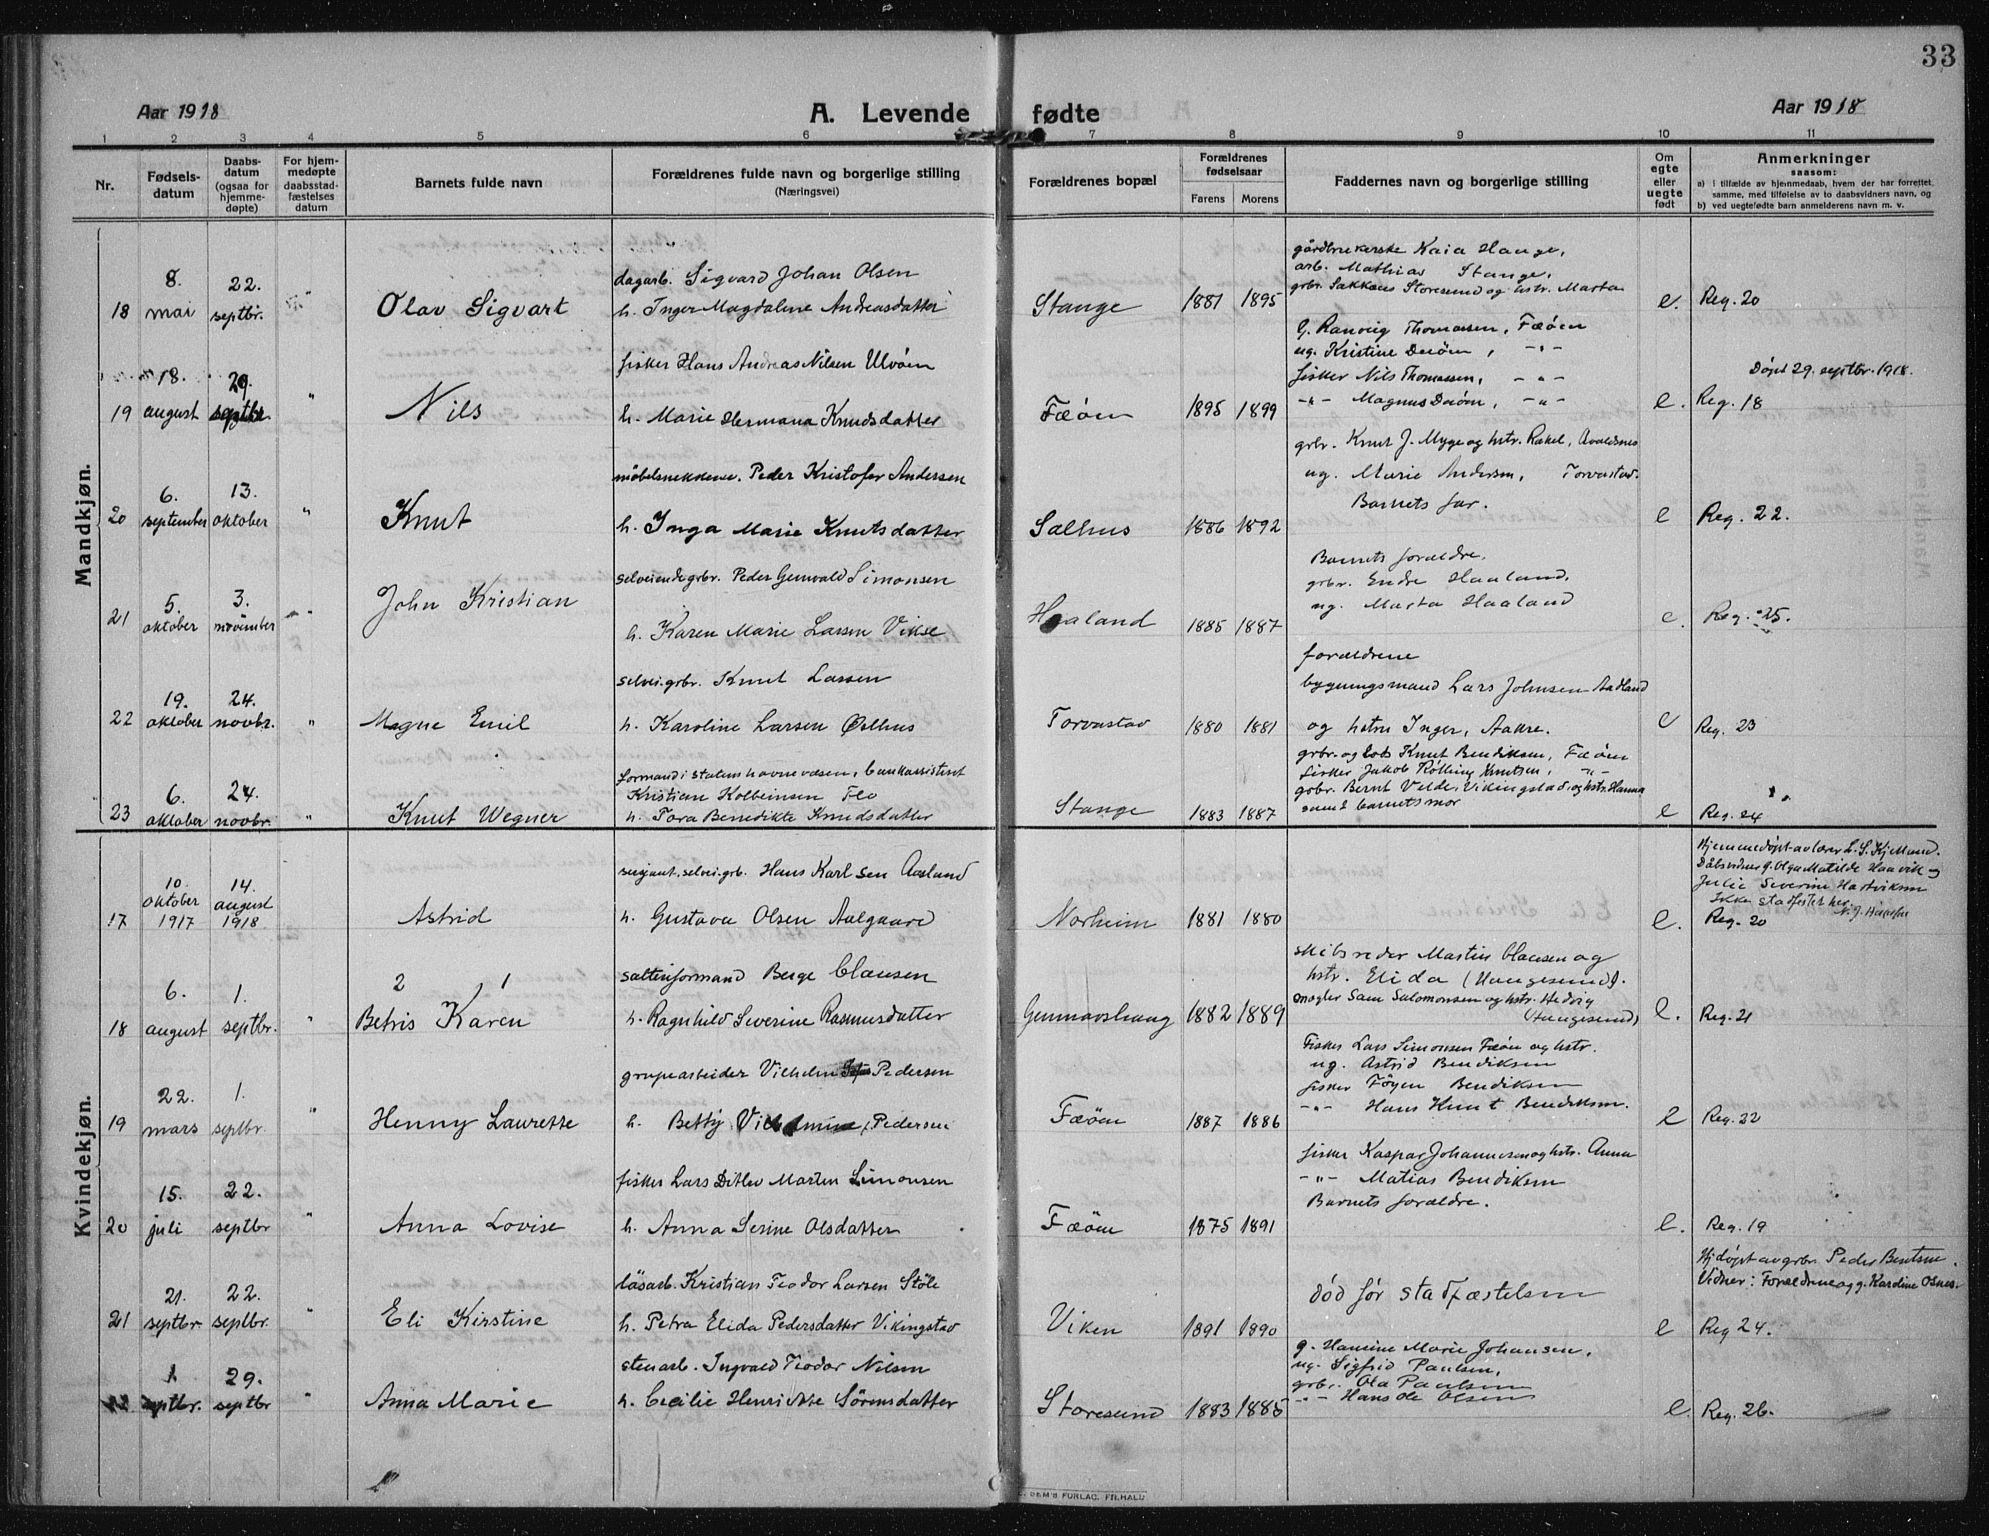 33
Aar 1918
A. Levende fødte
Aar 1918
1 2 3 4 5 6 7 8 9 10 11
Nr.
Fødsels-
datum
Daabs-
datum
(ogsaa for
hjemme-
døpte)
For hjem-
medøpte
daabsstad-
fæstelses
datum
Barnets fulde navn
Forældrenes fulde navn og borgerlige stilling
(Næringsvei)
Forældrenes bopæl
Forældrenes
fødselsaar
Farens Morens
Faddernes navn og borgerlige stilling
Om
egte
eller
uegte
født
Anmerkninger
saasom:
a) i tilfælde av hjemmedaab, hvem der har forrettet
samme, med tilføielse av to daabsvidners navn, og
b) ved uegtefødte barn anmelderens navn m. v.
Mandkjøn.
18 8. mai 22. septbr. " Olav Sigvart
dagarb. Sigvard Johan Olsen
h. Inger Magdalene Andreasdatter
Stange 1881 1895
gårdbrukerske Kaia Hauge,
arb. Mathias Stange,
grbr. Sakkæus Storesund og hstr. Marta
e. Reg. 20
19 18. august 29. septbr. " Nils
fisker Hans Andreas Nilsen Ulvøen
h. Marie Hermana Knudsdatter
Fæøen 1895 1899
G. Ranveig Thomassen, Fæøen
ug. Kristine Duøen, -"-
fisker Nils Thomassen, -"-
-"- Magnus Duøen, -"-
e. Døpt 29. septbr. 1918.
Reg. 18
20 6. september 13. oktober " Knut
møbelsnekker. Peder Kristofer Andersen
h. Inga Marie Knutsdatter
Salhus 1886 1892
grbr. Knut J. Myge og hstr. Rakel, Avaldsnes
ug. Marie Andersen, Torvastad.
Barnets far.
e Reg. 22.
21 5. oktober 3. november " John Kristian
selveiende grbr. Peder Gunvald Simonsen
h. Karen Marie Larsen Vikse
Haaland 1885 1887
Barnets forældre.
grbr. Endre Haaland,
ug. Marta Haaland
e. Reg. 25.
22 19. oktober 24. novbr. " Magne Emil
selvei. grbr. Knut Larsen
h. Karoline Larsen Østhus
Torvastad 1880 1881
forældrene
bygningsmand Lars Johnsen Aadland
og hstru Inger, Aakre.
e Reg. 23
23 6. oktober 24. novbr. " Knut Wegner
formand i statens havnevæsen, bankassistent
Kristian Kolbeinsen Flo
h. Tora Benedikte Knudsdatter
Stange 1883 1887
grbr. og lods Knut Bendiksen, Fæøen
fisker Jakob Røthing Knutsen, -"-
gbr. Bernt Velde, Vikingstad, og hstr. Hanna
samt barnets mor
e Reg. 24
Kvindekjøn.
17 10. oktober 1917 14. august 1918 Astrid
sergeant, selvei. grb. Hans Karlsen Aasland
h. Gustava Olsen Aalgaard
Norheim 1881 1880
e. Hjemmedøpt av lærer L. S. Kjelland.
Dåbsvidner g. Olga Matilde Haavik og
Julie Severine Hartviksen
Ikke stadfestet her.
Reg. 20
18 6. august 1. septbr. " 2 1
Betris Karen
salteriformand Berge Clausen
h. Ragnhild Severine Rasmusdatter
Gunnarshaug 1882 1889
skibsreder Martin Clausen og
hstr. Elida (Haugesund).
mægler Sam Salomonsen og hstr. Hedvig
(Haugesund)
e. Reg. 21
19 22. mars 1. septbr. " Henny Laurette
grupearbeider Vilhelm Pedersen
h. Betty Vilhelmine Pedersen
Fæøen 1887 1886
Fisker Lars Simonsen Fæøen og hstr.
ug. Astrid Bendiksen
fisker Tøgen Bendiksen
-"- Hans Knut Bendiksen.
e Reg. 22
20 15. juli 22. septbr " Anna Lovise
fisker Lars Ditlev Marten Simonsen
h. Anna Serine Olsdatter
Fæøen 1875 1891
fisker Kaspar Johannesen og hstr. Anna
-"- Matias Bendiksen
Barnets forældre.
e. Reg. 19
21 21. septbr. 22. septbr. " Eli Kirstine
løsarb. Kristian Teodor Larsen Støle
h. Petra Elida Pedersdatter Vikingstad
Viken 1891 1890
død før stadfæstelsen
e Hj døpt av grbr. Peder Bentsen.
Vidner: Forældrene og g. Karoline Osnes.
Reg 24.
22 1. septbr. 29. septbr " Anna Marie
stenarb. Ingvald Teodor Nilsen
h. Cecilie Henrikke Sørensdatter
Storesund 1883 1885
g. Hansine Marie Johansen,
ug. Sigfrid Paulsen,
grbr. Ola Paulsen
-"- Hans de Olsen
e. Reg. 26.
FORLAG, FR.HALD